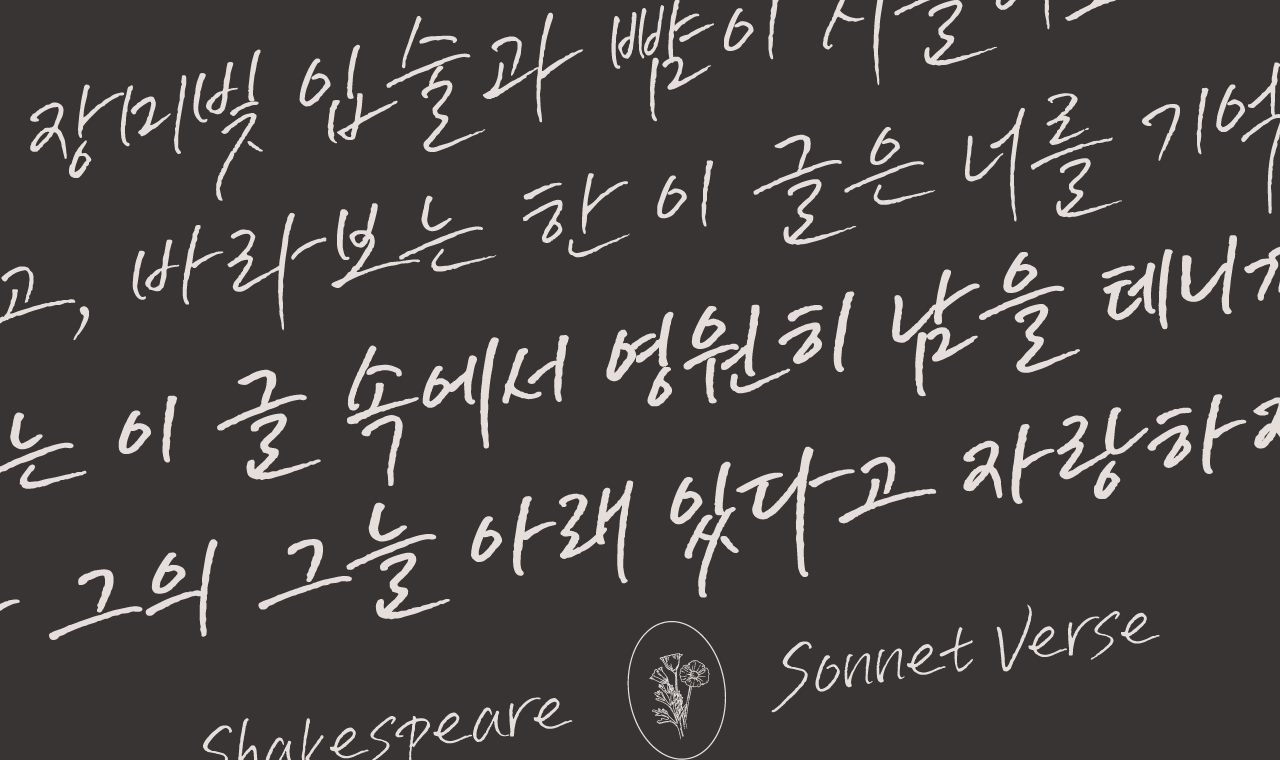 장미빛 입술과 뺨이 시들어도
고, 바라보는 한 이 글은 너를 기억
는 이 글 속에서 영원히 남을 테니까
그의 그늘 아래 있다고 자랑하지
Shakespeare Sonnet Verse